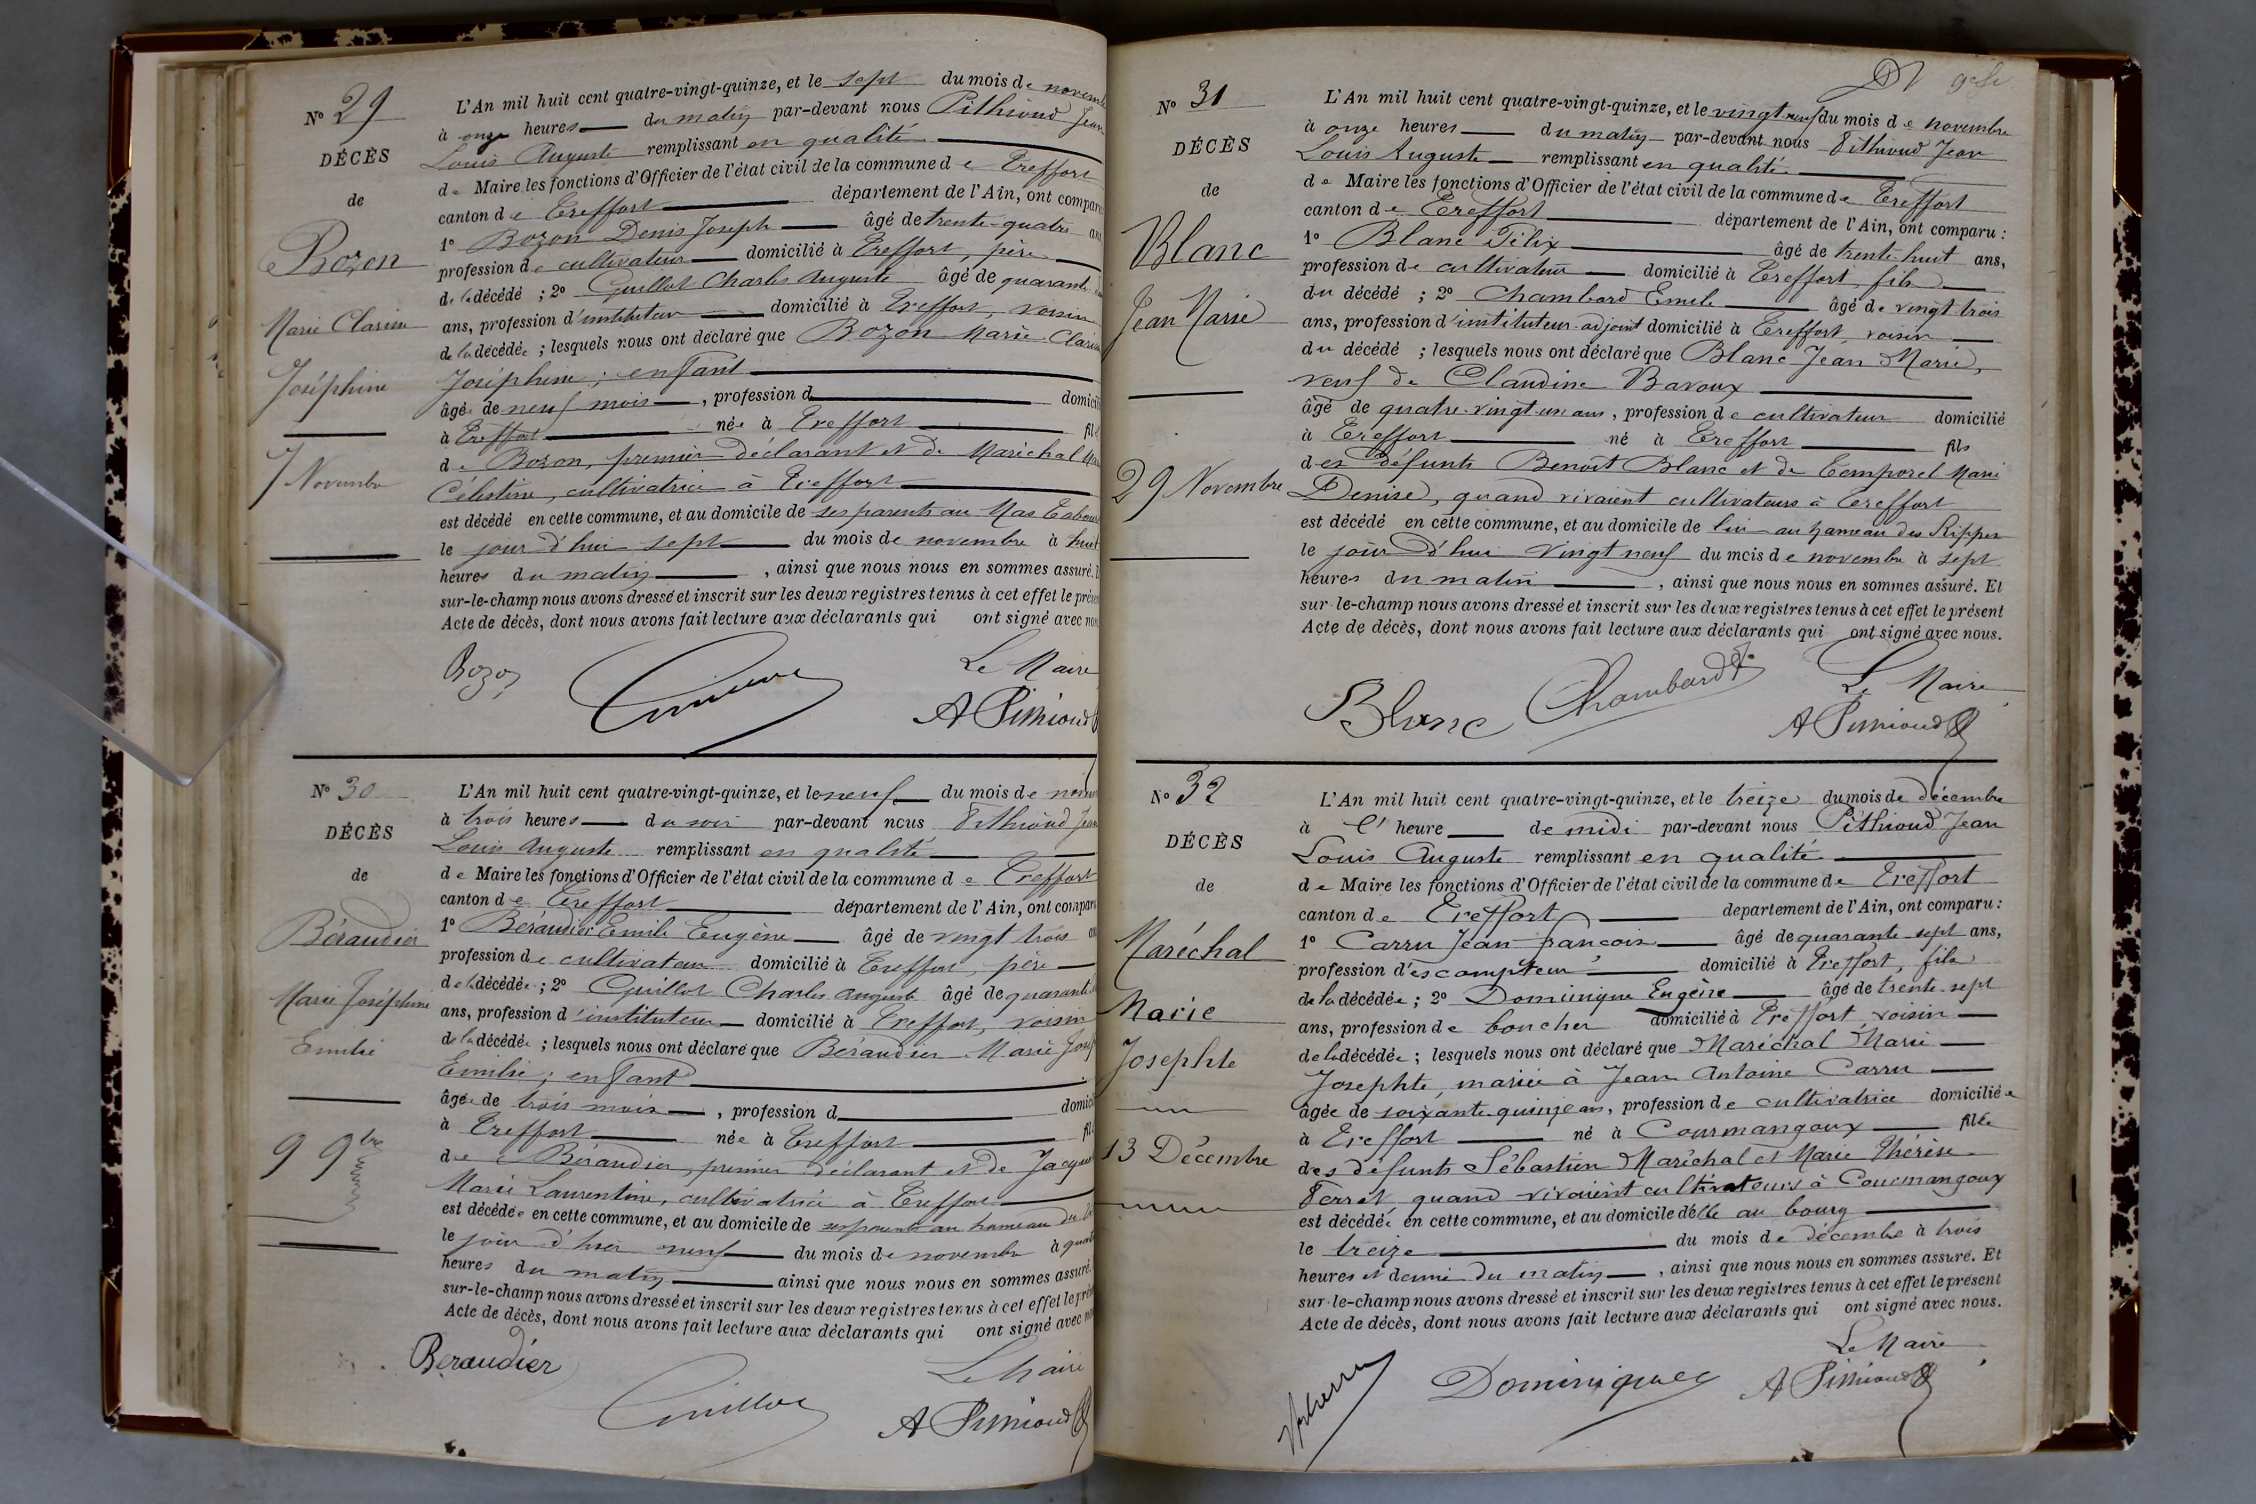 N° 29
DÉCÈS
de
Bozon
Marie Clarisse
Joséphine
7 Novembre
L'An mil huit cent quatre-vingt-quinze, et le sept du mois de novembre
à onze heures du matin par-devant nous Pithioud Jean
Louis Auguste remplissant en qualité
de Maire les fonctions d'Officier de l'état civil de la commune de Treffort
canton de Treffort département de l'Ain, ont comparu
1° Bozon Denis Joseph âgé de trente-quatre ans
profession de cultivateur domicilié à Treffort, père
de la décédé ; 2° Guillot Charles Auguste âgé de quarante
ans, profession d'instituteur domicilié à Treffort, voisin
de la décédée ; lesquels nous ont déclaré que Bozon Marie Clarisse
Joséphine ; enfant
âgée de neuf mois, profession d domicil
à Treffort née à Treffort fil
de Bozon, premier déclarant et de Maréchal Marie
Célestine, cultivatrice à Treffort
est décédé en cette commune, et au domicile de ses parents au Mas
le jour d'hui sept du mois de novembre à huit
heures du matin, ainsi que nous nous en sommes assuré.
sur-le-champ nous avons dressé et inscrit sur les deux registres tenus à cet effet le présent
Acte de décès, dont nous avons fait lecture aux déclarants qui ont signé avec nous
Le Maire
Bozon Guillot A Pithioud
N° 30
DÉCÈS
de
Béraudier
Marie Joséphine
Emilie
9 9bre
L'An mil huit cent quatre-vingt-quinze, et le neuf du mois de novem
à trois heures du soir par-devant nous Pithioud Jean
Louis Auguste remplissant en qualité
de Maire les fonctions d'Officier de l'état civil de la commune de Treffort
canton de Treffort département de l'Ain, ont comparu
1° Béraudier Emile Eugène âgé de vingt trois ans
profession de cultivateur domicilié à Treffort, père
de la décédée ; 2° Guillot Charles Auguste âgé de quarante
ans, profession d'instituteur domicilié à Treffort, voisin
de la décédée ; lesquels nous ont déclaré que Béraudier Marie Josép
Emilie ; enfant
âgée de trois mois, profession d domici
à Treffort née à Treffort fil
de Béraudier, premier déclarant et de Jacquet
Marie Laurentine, cultivatrice à Treffort
est décédée en cette commune, et au domicile de ses parents au hameau du
le jour d'hui neuf du mois de novembre à quatre
heures du matin ainsi que nous nous en sommes assuré.
sur-le-champ nous avons dressé et inscrit sur les deux registres tenus à cet effet le présent
Acte de décès, dont nous avons fait lecture aux déclarants qui ont signé avec nous
Le Maire
Beraudier Guillot A Pithioud
N° 31
DÉCÈS
de
Blanc
Jean Marie
29 Novembre
L'An mil huit cent quatre-vingt-quinze, et le vingt neuf du mois de novembre
à onze heures du matin par-devant nous Pithioud Jean
Louis Auguste remplissant en qualité
de Maire les fonctions d'Officier de l'état civil de la commune de Treffort
canton de Treffort département de l'Ain, ont comparu :
1° Blanc Félix âgé de trente-huit ans,
profession de cultivateur domicilié à Treffort, fils
du décédé ; 2° Chambard Emile âgé de vingt-trois
ans, profession d'instituteur-adjoint domicilié à Treffort, voisin
du décédé ; lesquels nous ont déclaré que Blanc Jean Marie,
veuf de Claudine Bavoux
âgé de quatre-vingt-un ans, profession de cultivateur domicilié
à Treffort né à Treffort fils
des défunts Benoît Blanc et de Temporel Marie
Denise, quand vivaient cultivateurs à Treffort
est décédé en cette commune, et au domicile de lui au hameau des
le jour d'hui vingt neuf du mois de novembre à sept
heures du matin, ainsi que nous nous en sommes assuré. Et
sur-le-champ nous avons dressé et inscrit sur les deux registres tenus à cet effet le présent
Acte de décès, dont nous avons fait lecture aux déclarants qui ont signé avec nous.
Le Maire
Blanc Chambard A Pithioud
N° 32
DÉCÈS
de
Maréchal
Marie
Josephte
13 Décembre
L'An mil huit cent quatre-vingt-quinze, et le treize du mois de décembre
à l'heure de midi par-devant nous Pithioud Jean
Louis Auguste remplissant en qualité
de Maire les fonctions d'Officier de l'état civil de la commune de Treffort
canton de Treffort département de l'Ain, ont comparu :
1° Carru Jean-françois âgé de quarante-sept ans,
profession d'escompteur domicilié à Treffort, fils
de la décédée ; 2° Dominique Eugène âgé de trente-sept
ans, profession de boucher domicilié à Treffort voisin
de la décédée ; lesquels nous ont déclaré que Maréchal Marie
Josephte, mariée à Jean Antoine Carru
âgée de soixante-quinze ans, profession de cultivatrice domiciliée
à Treffort né à Courmangoux fille
des défunts Sébastien Maréchal et Marie Thérèse
Ferret, quand vivaient cultivateurs à Courmangoux
est décédée en cette commune, et au domicile d'elle au bourg
le treize du mois de décembre à trois
heures et demie du matin, ainsi que nous nous en sommes assuré. Et
sur-le-champ nous avons dressé et inscrit sur les deux registres tenus à cet effet le présent
Acte de décès, dont nous avons fait lecture aux déclarants qui ont signé avec nous.
Le Maire
Dominique A Pithioud